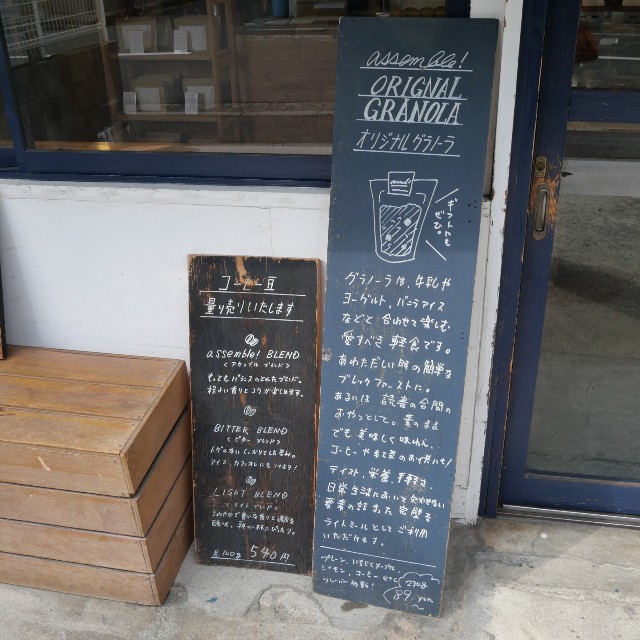 コーヒー豆
量り売りいたします
assemble! BLEND
<アッサンブル ブレンド>
もっともバランスのとれたブレンド。
程よい香りとコクが楽しめます。
BITTER BLEND
<ビター ブレンド>
LIGHT BLEND
<ライト ブレンド>
各100g 540円
assemble!
ORIGNAL
GRANOLA
オリジナルグラノーラ
ギフトにも
ぜひ。
グラノーラは、牛乳や
ヨーグルト、バニラアイス
などと合わせて楽しむ
愛すべき軽食です。
あわただしい時の簡単な
ブレックファーストに。
あるいは 読書の合間の
おやつとして。素のまま
でも美味しく味わえ、
コーヒーや紅茶のお共にも！
テイスト、栄養、手軽さ。
日常生活において欠かせない
要素の詰まった完璧な
ライトミールとしてご利用
いただけます。
プレーン、いちじくメープル
シナモン、コーヒー etc
フレーバー
230g